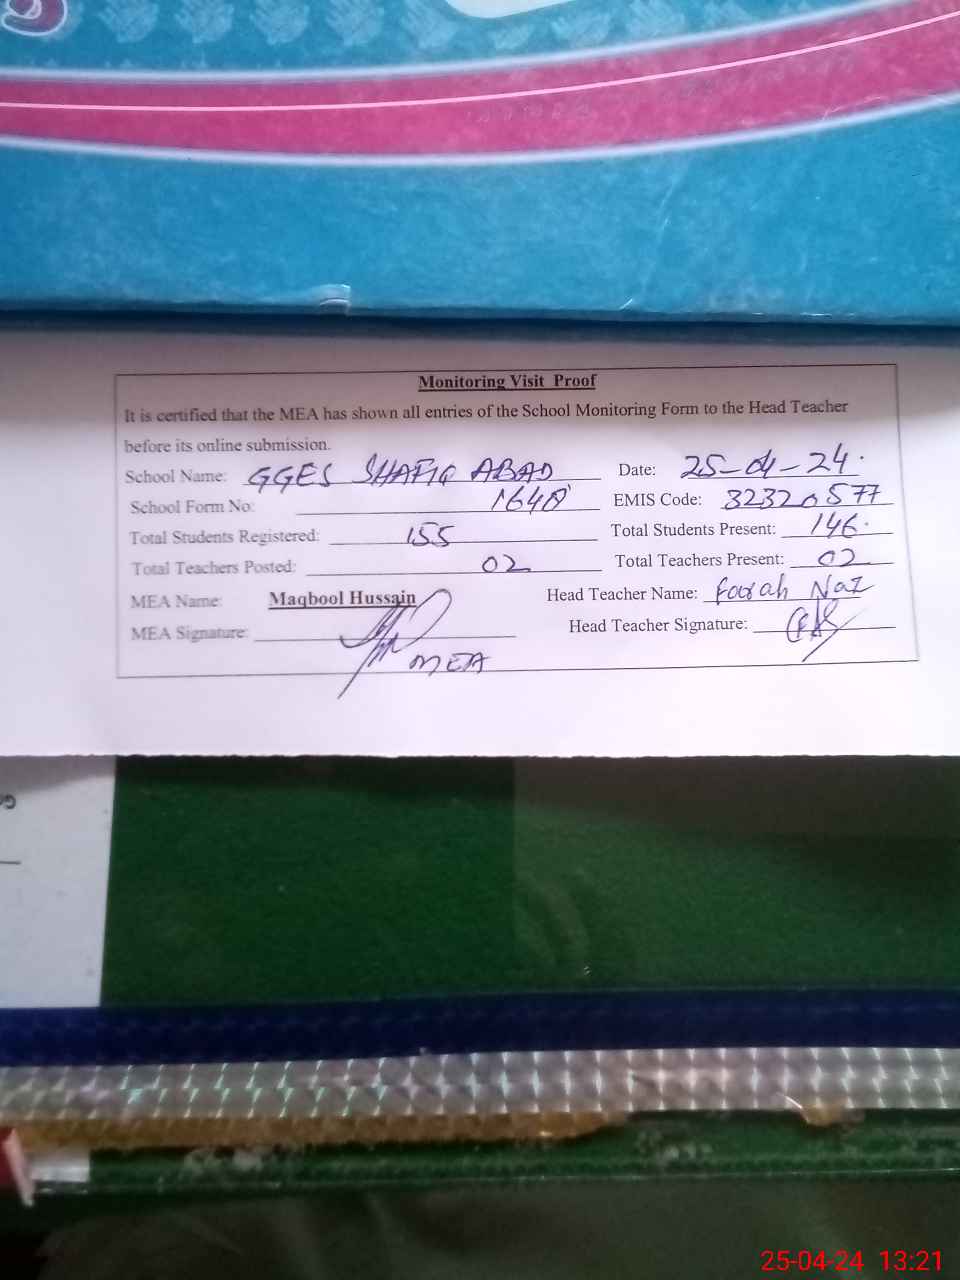 Monitoring Visit Proof
It is certified that the MEA has shown all entries of the School Monitoring Form to the Head Teacher
before its online submission.
School Name: GGES SHAFIQ ABAD Date: 25-04-24
School Form No: 1648 EMIS Code: 32320577
Total Students Registered: 155 Total Students Present: 146
Total Teachers Posted: 02 Total Teachers Present: 02
MEA Name: Maqbool Hussain Head Teacher Name: Naz
MEA Signature: MEA Head Teacher Signature:
25-04-24 13:21